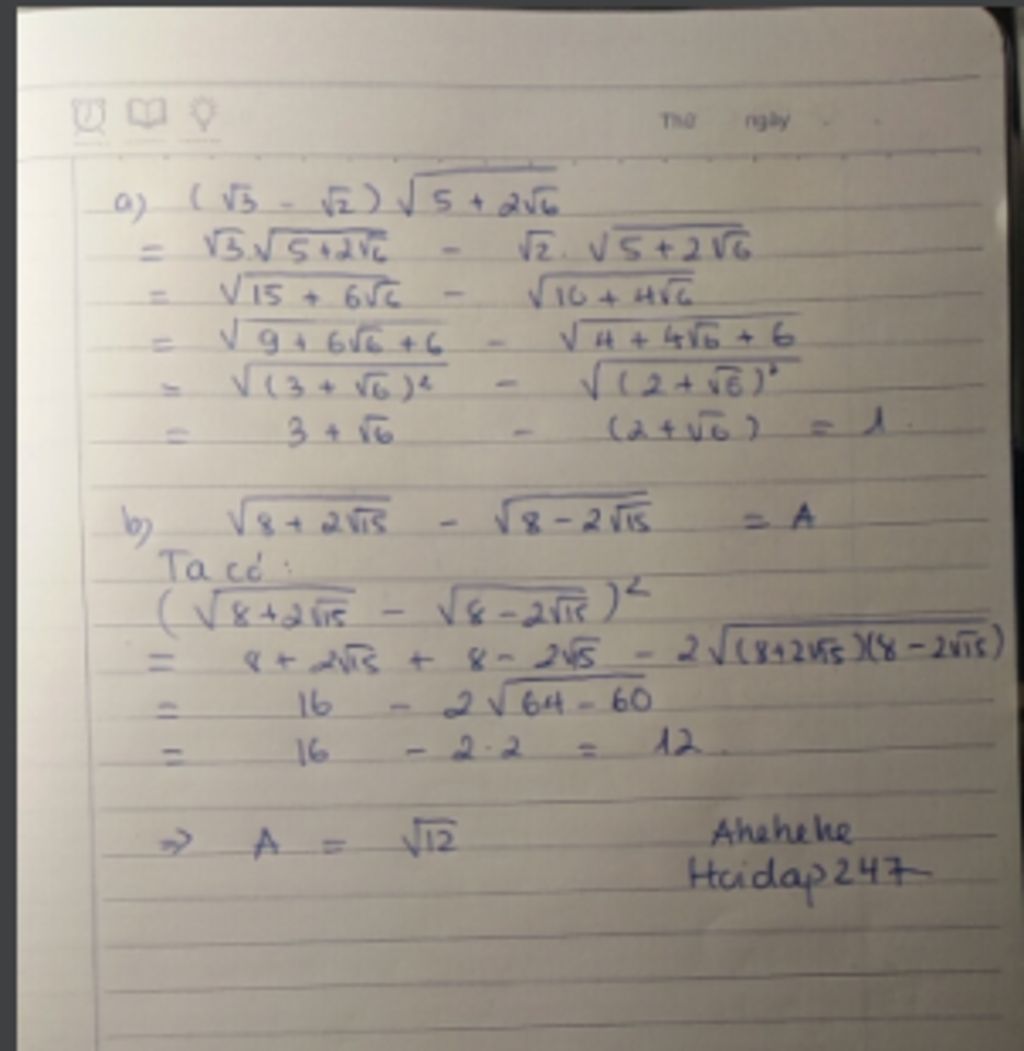 Thứ ngày
a) (√3 - √2) √(5 + 2√6)
= √3.√(5+2√6) - √2. √(5+2√6)
= √(15 + 6√6) - √(10 + 4√6)
= √(9 + 6√6 + 6) - √(4 + 4√6 + 6)
= √((3 + √6)²) - √((2 + √6)²)
= 3 + √6 - (2 + √6) = 1.
b) √(8 + 2√15) - √(8 - 2√15) = A
Ta có:
(√(8+2√15) - √(8-2√15))²
= 8 + 2√15 + 8 - 2√15 - 2√((8+2√15)(8-2√15))
= 16 - 2√(64 - 60)
= 16 - 2.2 = 12.
=> A = √12
Ahehehe
Hoidap247